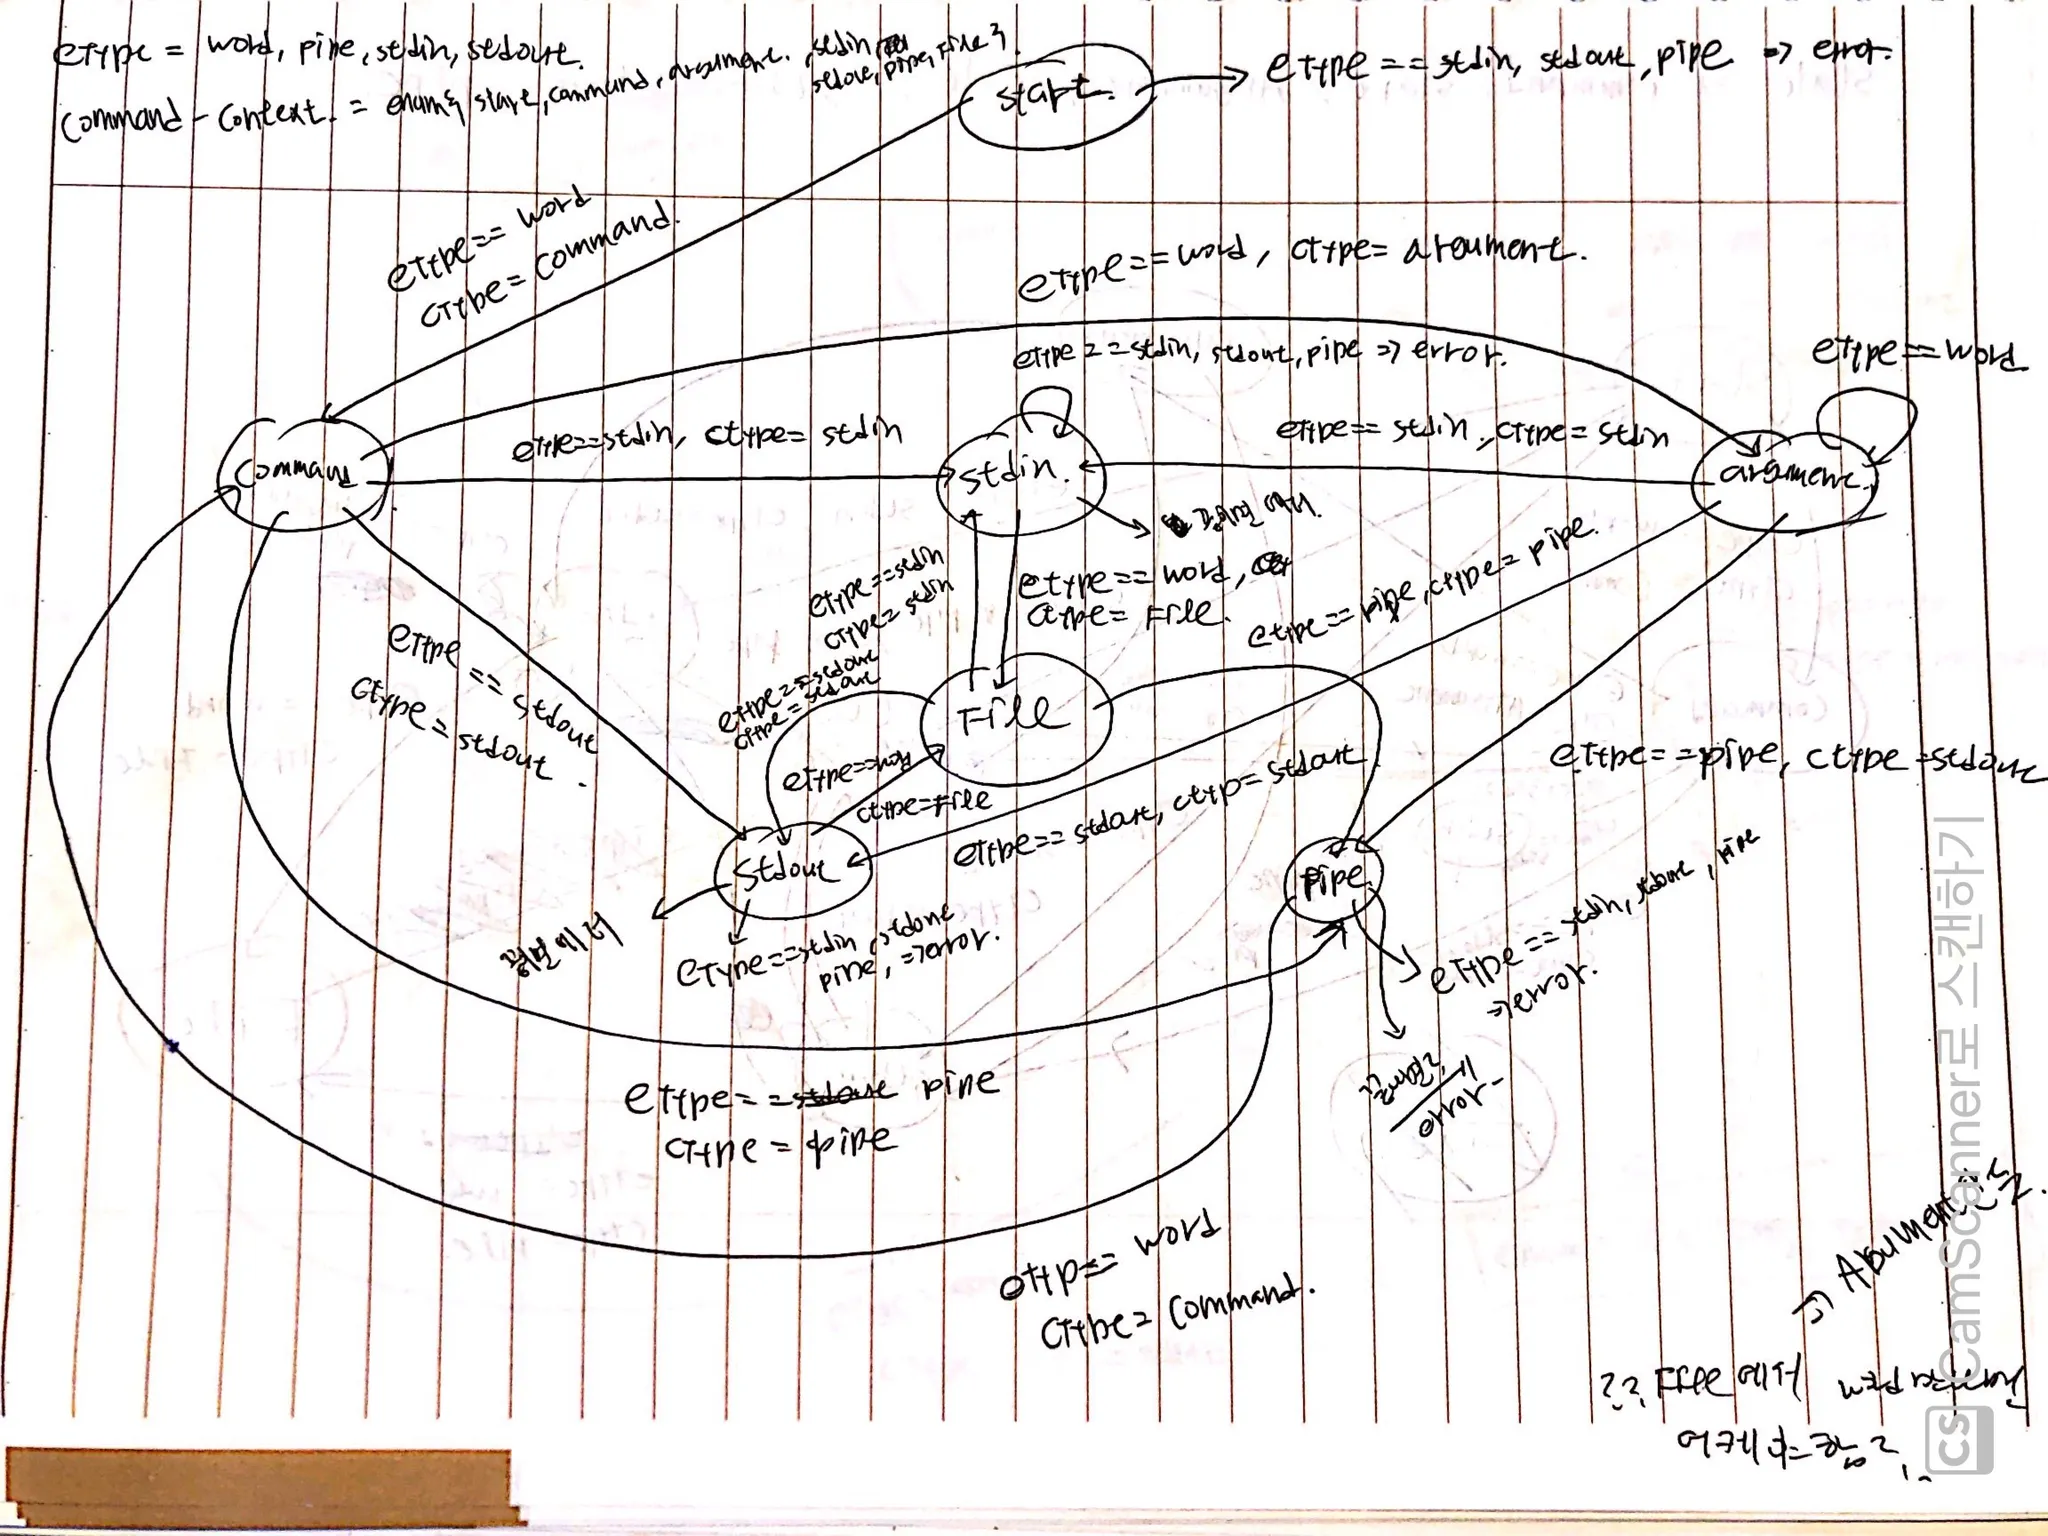 eType = word, pipe, stdin, stdout.
Command-Context. = enum{ start, command, argument. , stdin,
stdout, pipe, File }.
start.
eType == stdin, stdout, pipe => error.
eType == word
cType = Command.
eType == word, cType = argument.
eType == stdin, stdout, pipe => error.
eType == word
eType == stdin, cType = stdin
eType == stdin, cType = stdin
Command
stdin.
argument.
끝나면 에러.
eType == stdin
cType = stdin
eType == word,
cType = File.
eType == pipe, cType = pipe.
eType == stdout
cType = stdout.
eType == stdout
cType = stdout
File
eType == word
cType = File
eType == stdout, cTyp = stdout
eType == pipe, cType = stdout
stdout
pipe
끝나면 에러
eType == stdin, stdout
pipe, => error.
eType == stdin, stdout, pipe
=> error.
끝나면
error
eType == stdout pipe
cType = pipe
eTyp == word
cType = Command.
=> Argument
?? File 에서 word
어케 해야함?
CS CamScanner로 스캔하기